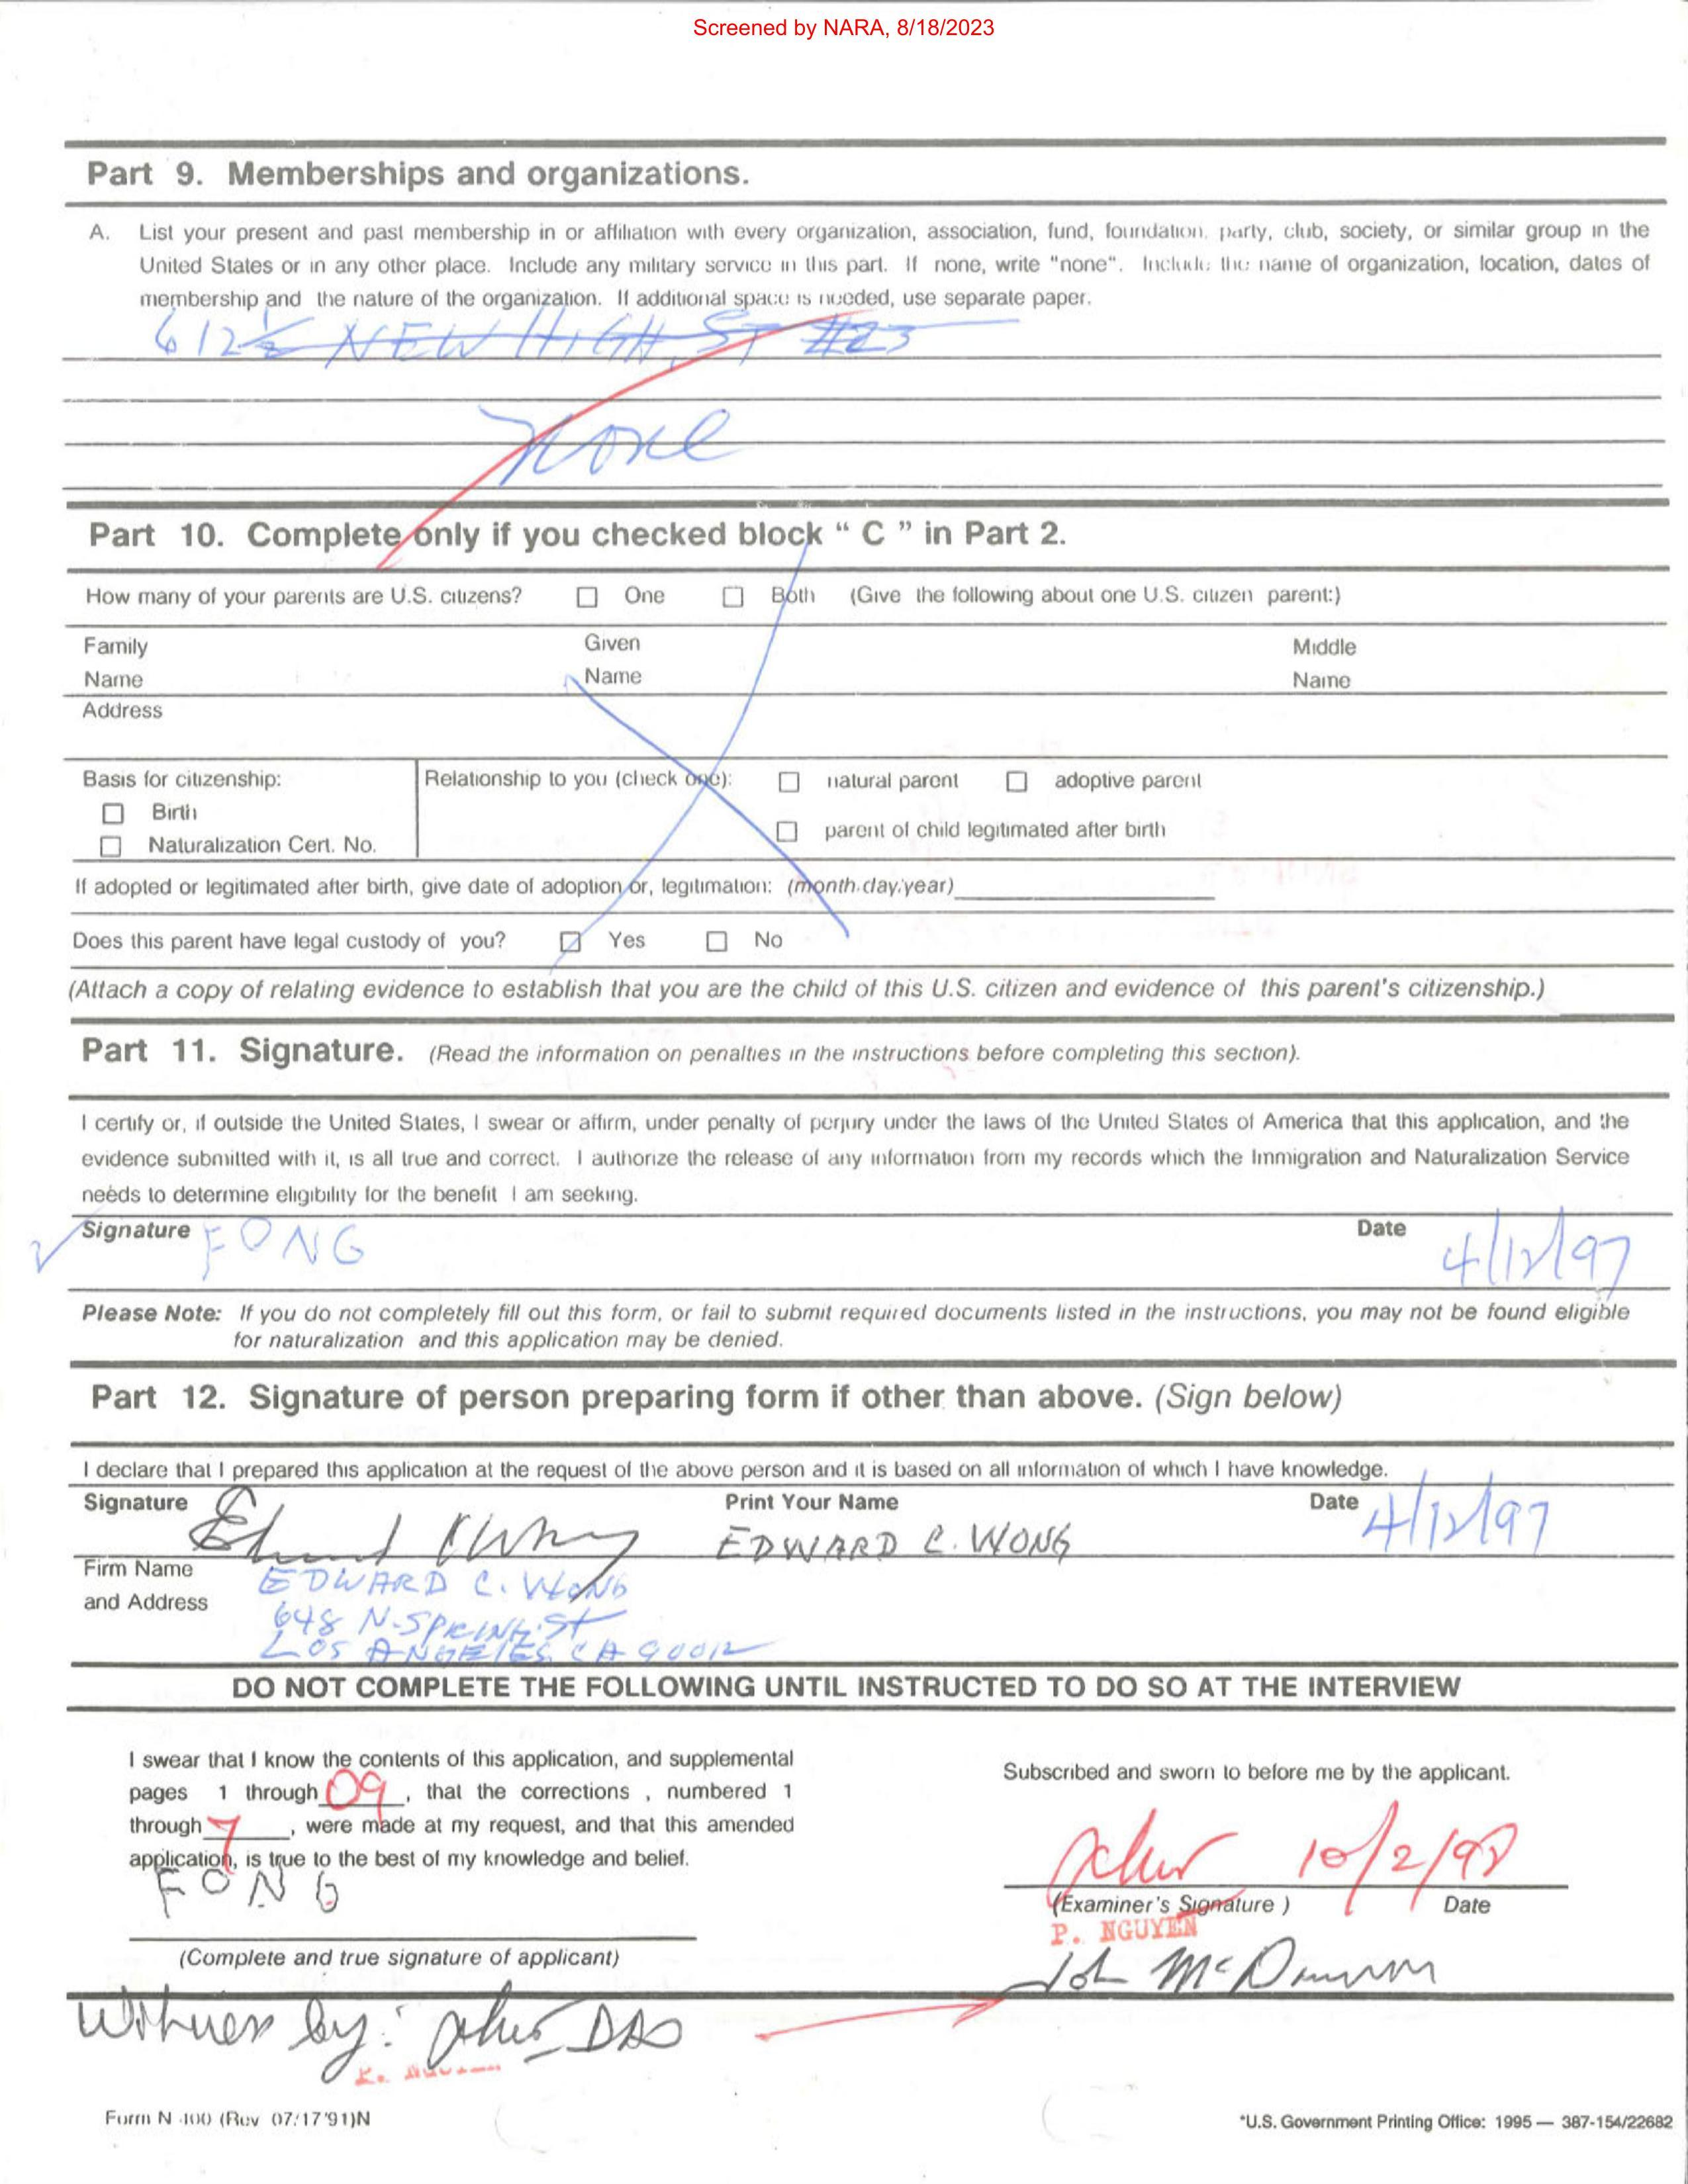 Screened by NARA, 8/18/2023
Part 9. Memberships and organizations.
A. List your present and past membership in or affiliation with every organization, association, fund, foundation, party, club, society, or similar group in the
United States or in any other place. Include any military service in this part. If none, write "none". Include the name of organization, location, dates of
membership and the nature of the organization. If additional space is needed, use separate paper.
612½ NEW HIGH ST #23
None
Part 10. Complete only if you checked block “ C ” in Part 2.
How many of your parents are U.S. citizens? One Both (Give the following about one U.S. citizen parent:)
Family Given Middle
Name Name Name
Address
Basis for citizenship: Relationship to you (check one): natural parent adoptive parent
Birth
parent of child legitimated after birth
Naturalization Cert. No.
If adopted or legitimated after birth, give date of adoption or, legitimation: (month.day.year)
Does this parent have legal custody of you? Yes No
(Attach a copy of relating evidence to establish that you are the child of this U.S. citizen and evidence of this parent's citizenship.)
Part 11. Signature. (Read the information on penalties in the instructions before completing this section).
I certify or, if outside the United States, I swear or affirm, under penalty of perjury under the laws of the United States of America that this application, and the
evidence submitted with it, is all true and correct. I authorize the release of any information from my records which the Immigration and Naturalization Service
needs to determine eligibility for the benefit I am seeking.
Signature FONG Date 4/12/97
Please Note: If you do not completely fill out this form, or fail to submit required documents listed in the instructions, you may not be found eligible
for naturalization and this application may be denied.
Part 12. Signature of person preparing form if other than above. (Sign below)
I declare that I prepared this application at the request of the above person and it is based on all information of which I have knowledge.
Signature Print Your Name Date 4/12/97
EDWARD C. WONG
Firm Name EDWARD C. WONG
and Address 648 N. SPRING ST
LOS ANGELES CA 90012
DO NOT COMPLETE THE FOLLOWING UNTIL INSTRUCTED TO DO SO AT THE INTERVIEW
I swear that I know the contents of this application, and supplemental
pages 1 through 09, that the corrections , numbered 1
through 7, were made at my request, and that this amended
application, is true to the best of my knowledge and belief.
FONG
(Complete and true signature of applicant)
Subscribed and sworn to before me by the applicant.
10/2/98
(Examiner's Signature ) Date
P. NGUYEN
Witness by: DAO
Form N-400 (Rev 07/17/91)N
*U.S. Government Printing Office: 1995 — 387-154/22682